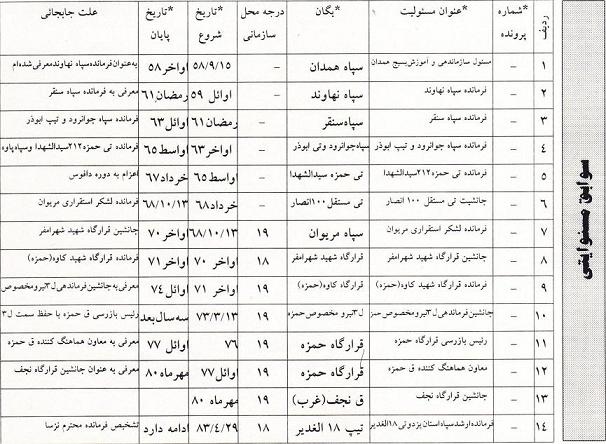 سوابق مسئولیتی
ردیف *شماره پرونده *عنوان مسئولیت *یگان درجه محل سازمانی *تاریخ شروع *تاریخ پایان علت جابجائی
۱ – مسئول سازماندهی و آموزش بسیج همدان سپاه همدان – ۵۸/۹/۱۵ اواخر ۵۸ به عنوان فرمانده سپاه نهاوند معرفی شده ام
۲ – فرمانده سپاه نهاوند سپاه نهاوند – اوائل ۵۹ رمضان ۶۱ معرفی به فرمانده سپاه سنقر
۳ – فرمانده سپاه سنقر سپاه سنقر – رمضان ۶۱ اوائل ۶۳ فرمانده سپاه جوانرود و تیپ ابوذر
۴ – فرمانده سپاه جوانرود و تیپ ابوذر سپاه جوانرود وتی ابوذر – اواخر ۶۳ اواسط ۶۵ فرمانده تی حمزه ۲۱۲ سیدالشهدا وسپاه پاوه
۵ – فرمانده تی حمزه ۲۱۲ سیدالشهدا تی حمزه سیدالشهدا – اواسط ۶۵ خرداد ۶۷ اعزام به دوره دافوس
۶ – جانشیت تی مستقل ۱۰۰ انصار تی مستقل ۱۰۰ انصار – خرداد ۶۸ ۶۸/۱۰/۱۳ فرمانده لشکر استقراری مریوان
۷ – فرمانده لشکر استقراری مریوان سپاه مریوان ۱۹ ۶۸/۱۰/۱۳ اواخر ۷۰ جانشین قرارگاه شهید شهرامفر
۸ – جانشین قرارگاه شهید شهرامفر قرارگاه شهید شهرامفر ۱۸ اواخر ۷۰ اواخر ۷۱ فرمانده قرارگاه شهید کاوه (حمزه)
۹ – فرمانده قرارگاه شهید کاوه (حمزه) قرارگاه کاوه (حمزه) ۱۹ اواخر ۷۱ اوائل ۷۴ معرفی به جانشین فرماندهی ل۳ نیرو مخصوص
۱۰ – جانشین فرماندهی ل۳ نیرو مخصوص حمز ل۳ نیرو مخصوص حمزه ۱۹ ۷۳/۳/۱۳ سه سال بعد رئیس بازرسی ق حمزه با حفظ سمت ل۳
۱۱ – رئیس بازرسی قرارگاه حمزه قرارگاه حمزه ۱۹ ۷۶ اوائل ۷۷ معرفی به معاون هماهنگ کننده ق حمزه
۱۲ – معاون هماهنگ کننده ق حمزه قرارگاه حمزه ۱۹ اوائل ۷۷ مهرماه ۸۰ معرفی به عنوان جانشین قرارگاه نجف
۱۳ – جانشین قرارگاه نجف ق نجف (غرب) ۱۹ مهرماه ۸۰
۱۴ – فرمانده ارشد سپاه استان یزدوتی ۱۸ الغدیر تیپ ۱۸ الغدیر ۱۸ ۸۳/۴/۲۹ ادامه دارد تشخیص فرمانده محترم نزسا